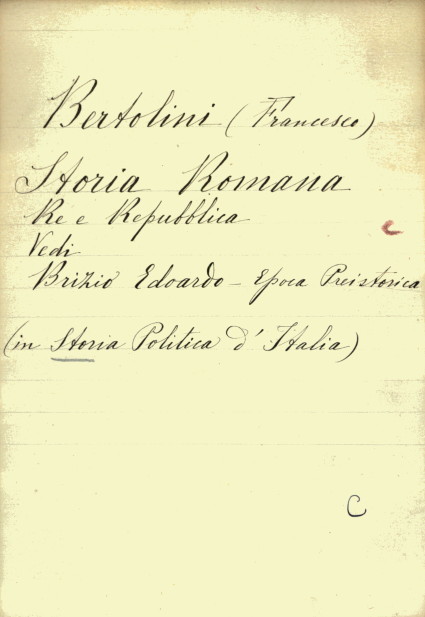 Bertolini (Francesco)
Storia Romana
Re e Repubblica
c
Vedi
Brizio Edoardo - Epoca Preistorica
(in Storia Politica d'Italia)
C